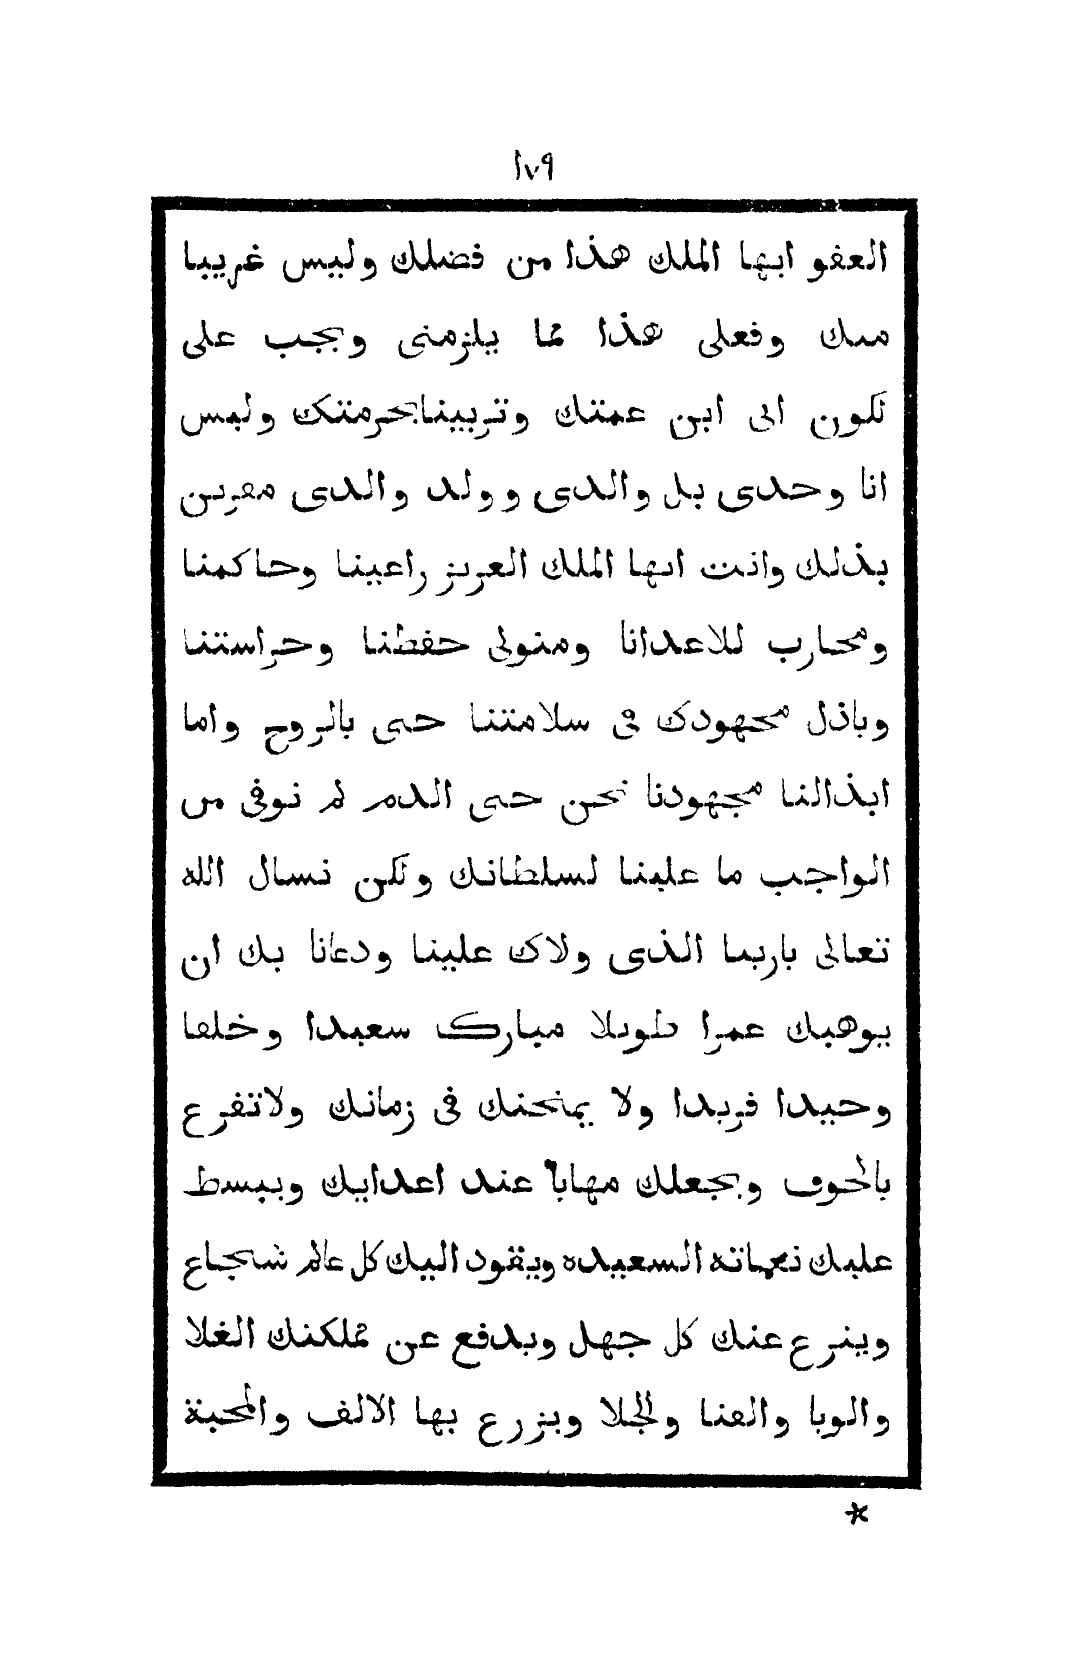 ١٧٩
العفو ايها الملك هذا من فضلك وليس غريبا
منك وفعلى هذا مما يلزمنى ويجب على
لكون انى ابن عمتك وتربيتنا بحرمتك وليس
انا وحدى بل والدى وولد والدى مقرين
بذلك وانت ايها الملك العزيز راعينا وحاكمنا
ومحارب للاعدانا ومتولى حفظنا وحراستنا
وباذل مجهودك فى سلامتنا حتى بالروح واما
ابذالنا مجهودنا نحن حتى الدم لم نوفى من
الواجب ما علينا لسلطانك ولكن نسال الله
تعالى بارينا الذى ولاك علينا ودعانا بك ان
يوهبك عمرا طويلا مبارك سعيدا وخلفا
وحيدا فريدا ولا يمتحنك فى زمانك ولاتفرع
بالخوف ويجعلك مهابا عند اعدايك ويبسط
عليك نعماته السعيده ويقود اليك كل عالم شجاع
وينرع عنك كل جهل ويدفع عن مملكتك الغلا
والوبا والفنا والجلا ويزرع بها الالف والمحبة
*